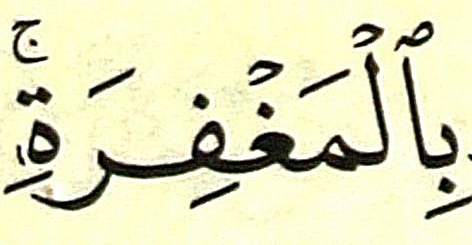 بِٱلْمَغْفِرَةِۚ